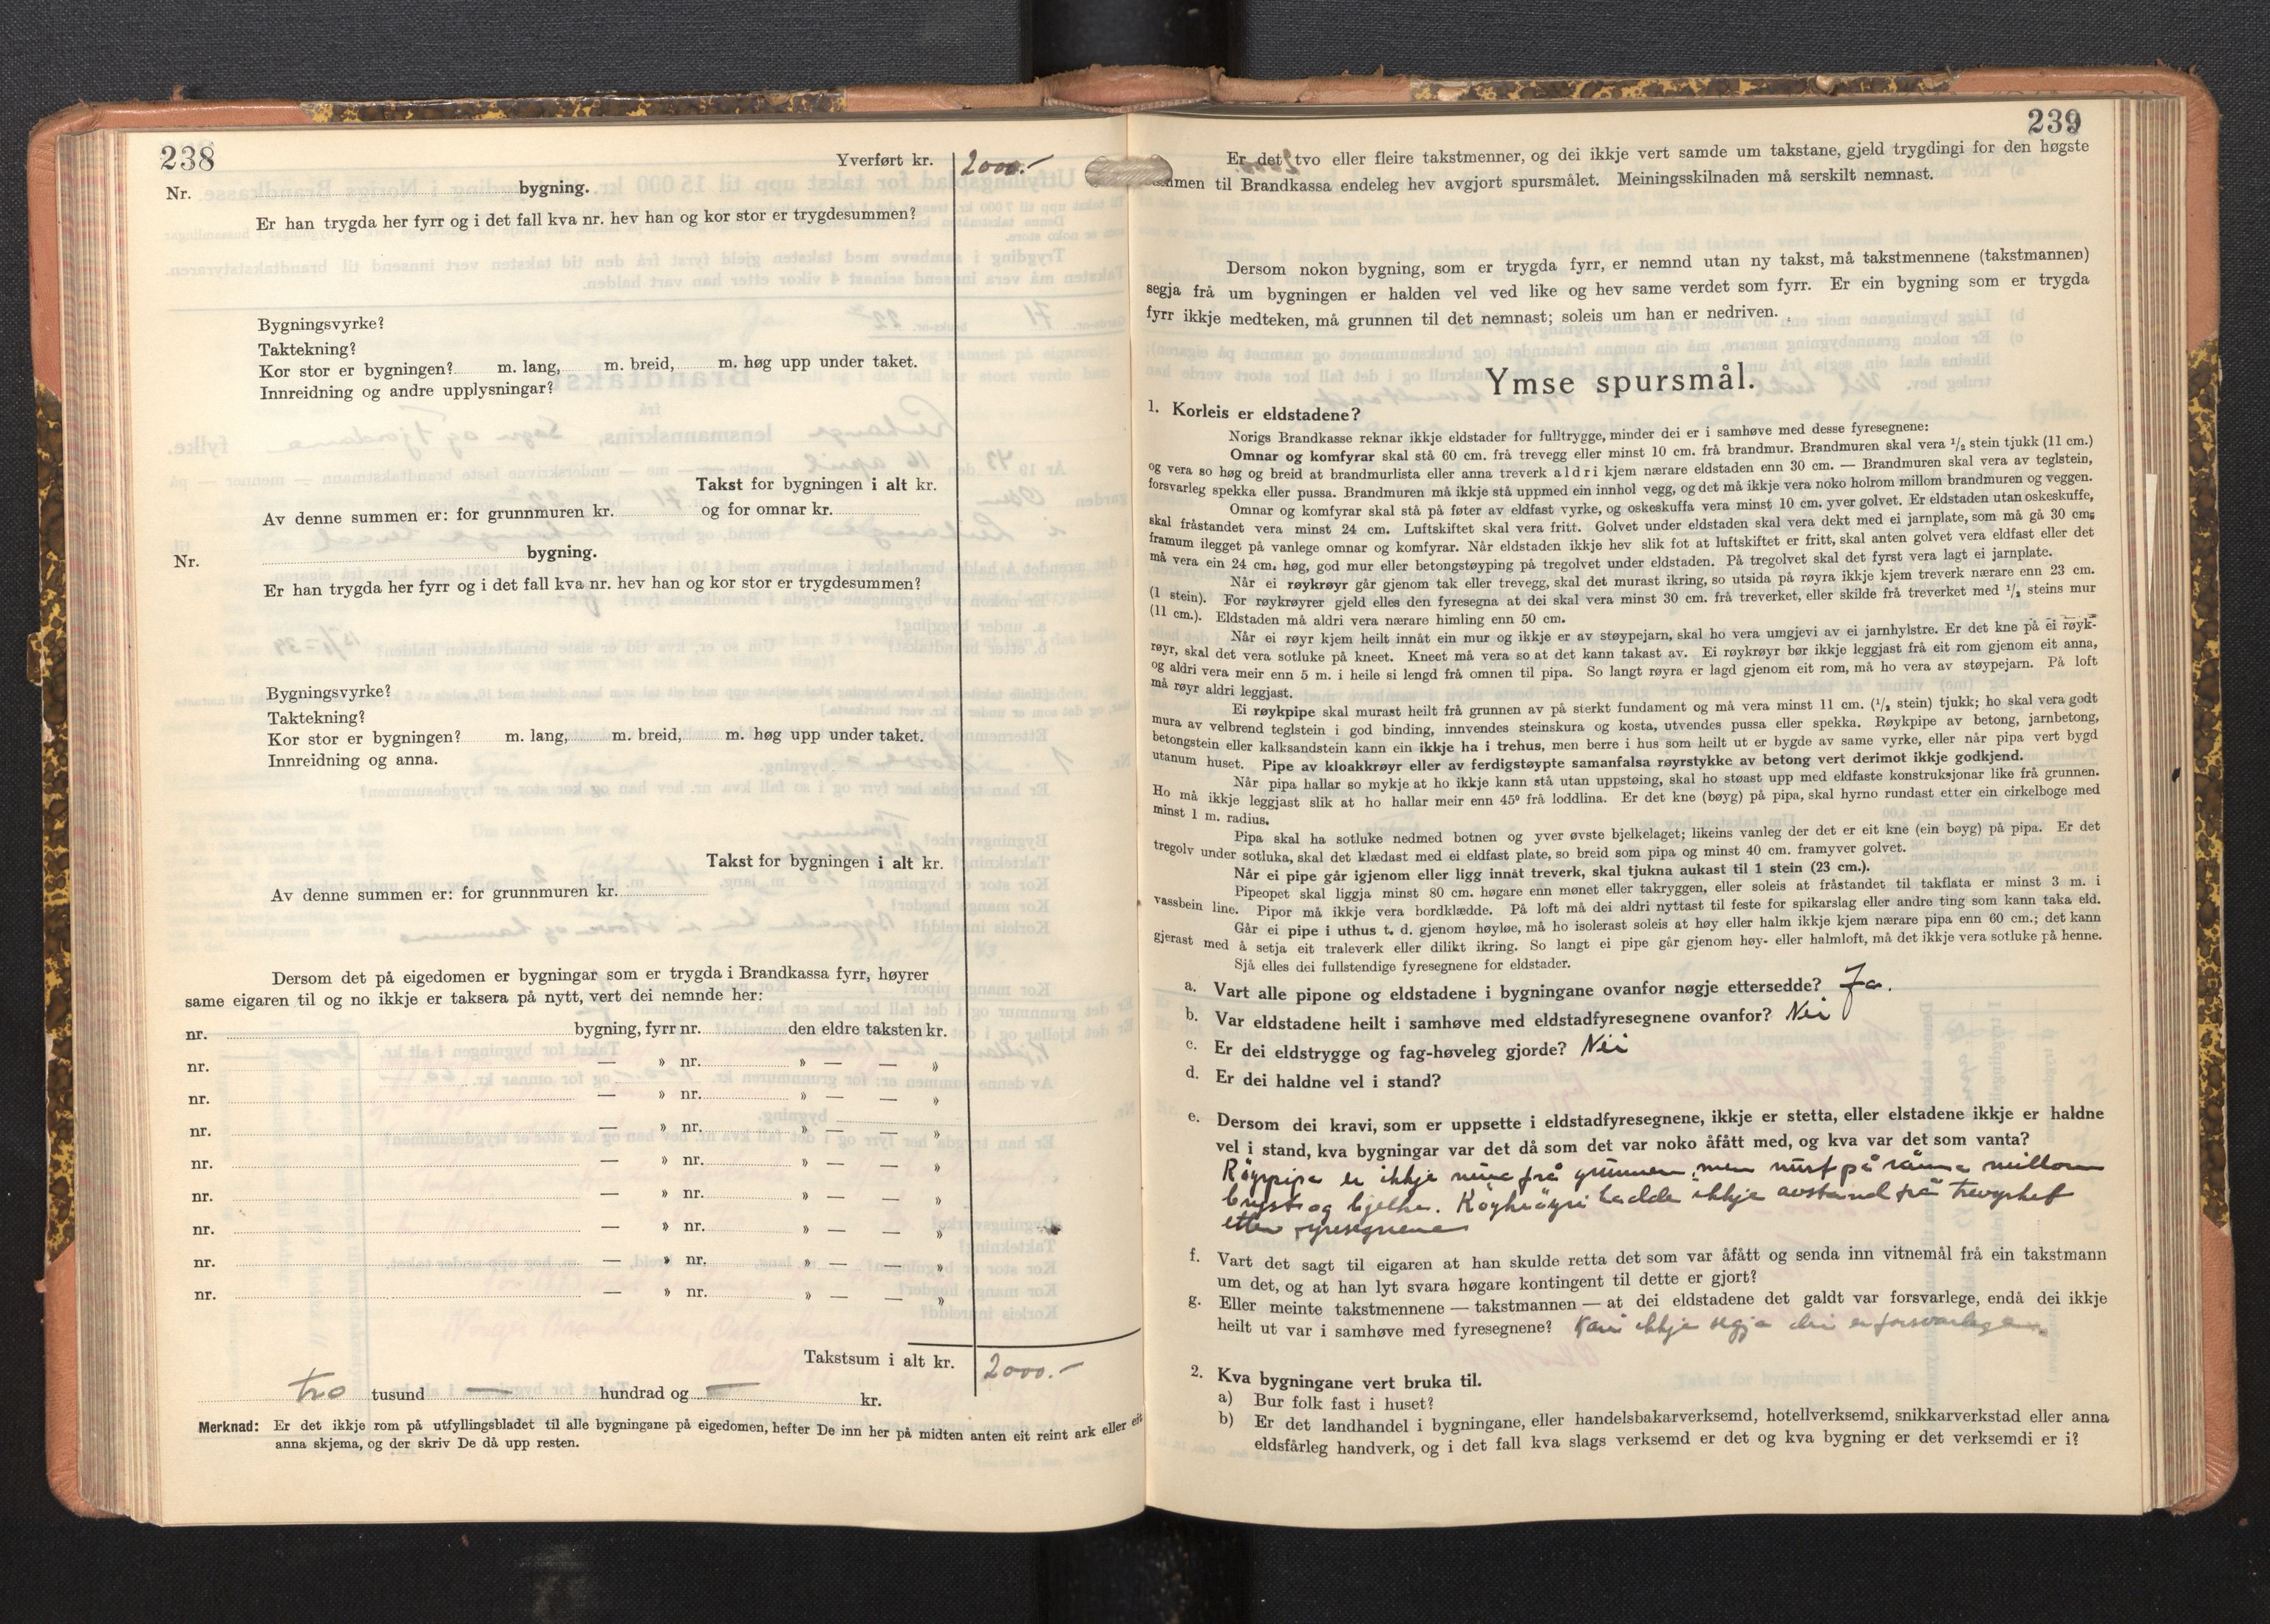 238
Yverført kr. 2000.-
Nr. bygning.
Er han trygda her fyrr og i det fall kva nr. hev han og kor stor er trygdesummen?
Bygningsvyrke?
Taktekning?
Kor stor er bygningen? m. lang, m. breid, m. høg upp under taket.
Innreidning og andre upplysningar?
Takst for bygningen i alt kr.
Av denne summen er: for grunnmuren kr. og for omnar kr.
Nr. bygning.
Er han trygda her fyrr og i det fall kva nr. hev han og kor stor er trygdesummen?
Bygningsvyrke?
Taktekning?
Kor stor er bygningen? m. lang, m. breid, m. høg upp under taket.
Innreidning og anna.
Takst for bygningen i alt kr.
Av denne summen er: for grunnmuren kr.
Dersom det på eigedomen er bygningar som er trygda i Brandkassa fyrr, høyrer
same eigaren til og no ikkje er taksera på nytt, vert dei nemnde her:
nr. bygning, fyrr nr. den eldre taksten kr.
nr. — » nr. » — — »
nr. — » nr. » — — »
nr. — » nr. » — — »
nr. — » nr. » — — »
nr. — » nr. » — — »
nr. — » nr. » — — »
nr. — » nr. » — — »
nr. — » nr. » — — »
Takstsum i alt kr. 2000.-
tvo tusund — hundrad og — kr.
Merknad: Er det ikkje rom på utfyllingsbladet til alle bygningane på eigedomen, hefter De inn her på midten anten eit reint ark eller eit
anna skjema, og der skriv De då upp resten.
239
Er det tvo eller fleire takstmenner, og dei ikkje vert samde um takstane, gjeld trygdingi for den høgste
summen til Brandkassa endeleg hev avgjort spursmålet. Meiningsskilnaden må serskilt nemnast.
Dersom nokon bygning, som er trygda fyrr, er nemnd utan ny takst, må takstmennene (takstmannen)
segja frå um bygningen er halden vel ved like og hev same verdet som fyrr. Er ein bygning som er trygda
fyrr ikkje medteken, må grunnen til det nemnast; soleis um han er nedriven.
Ymse spursmål.
1. Korleis er eldstadene?
Norigs Brandkasse reknar ikkje eldstader for fulltrygge, minder dei er i samhøve med desse fyresegnene:
Omnar og komfyrar skal stå 60 cm. frå trevegg eller minst 10 cm. frå brandmur. Brandmuren skal vera 1/2 stein tjukk (11 cm.)
og vera so høg og breid at brandmurlista eller anna treverk aldri kjem nærare eldstaden enn 30 cm. — Brandmuren skal vera av teglstein,
forsvarleg spekka eller pussa. Brandmuren må ikkje stå uppmed ein innhol vegg, og det må ikkje vera noko holrom millom brandmuren og veggen.
Omnar og komfyrar skal stå på føter av eldfast vyrke, og oskeskuffa vera minst 10 cm. yver golvet. Er eldstaden utan oskeskuffe,
skal fråstandet vera minst 24 cm. Luftskiftet skal vera fritt. Golvet under eldstaden skal vera dekt med ei jarnplate, som må gå 30 cm.
framum ilegget på vanlege omnar og komfyrar. Når eldstaden ikkje hev slik fot at luftskiftet er fritt, skal anten golvet vera eldfast eller det
må vera ein 24 cm. høg, god mur eller betongstøyping på tregolvet under eldstaden. På tregolvet skal det fyrst vera lagt ei jarnplate.
Når ei røykrøyr går gjenom tak eller trevegg, skal det murast ikring, so utsida på røyra ikkje kjem treverk nærare enn 23 cm.
(1 stein). For røykrøyrer gjeld elles den fyresegna at dei skal vera minst 30 cm. frå treverket, eller skilde frå treverket med 1/2 steins mur
(11 cm.). Eldstaden må aldri vera nærare himling enn 50 cm.
Når ei røyr kjem heilt innåt ein mur og ikkje er av støypejarn, skal ho vera umgjevi av ei jarnhylstre. Er det kne på ei røyk-
røyr, skal det vera sotluke på kneet. Kneet må vera so at det kann takast av. Ei røykrøyr bør ikkje leggjast frå eit rom gjenom eit anna,
og aldri vera meir enn 5 m. i heile si lengd frå omnen til pipa. So langt røyra er lagd gjenom eit rom, må ho vera av støypejarn. På loft
må røyr aldri leggjast.
Ei røykpipe skal murast heilt frå grunnen av på sterkt fundament og må vera minst 11 cm. (1/2 stein) tjukk; ho skal vera godt
mura av velbrend teglstein i god binding, innvendes steinskura og kosta, utvendes pussa eller spekka. Røykpipe av betong, jarnbetong,
betongstein eller kalksandstein kann ein ikkje ha i trehus, men berre i hus som heilt ut er bygde av same vyrke, eller når pipa vert bygd
utanum huset. Pipe av kloakkrøyr eller av ferdigstøypte samanfalsa røyrstykke av betong vert derimot ikkje godkjend.
Når pipa hallar so mykje at ho ikkje kann stå utan uppstøing, skal ho støast upp med eldfaste konstruksjonar like frå grunnen.
Ho må ikkje leggjast slik at ho hallar meir enn 45° frå loddlina. Er det kne (bøyg) på pipa, skal hyrno rundast etter ein cirkelboge med
minst 1 m. radius.
Pipa skal ha sotluke nedmed botnen og yver øvste bjelkelaget; likeins vanleg der det er eit kne (ein bøyg) på pipa. Er det
tregolv under sotluka, skal det klædast med ei eldfast plate, so breid som pipa og minst 40 cm. framyver golvet.
Når ei pipe går igjenom eller ligg innåt treverk, skal tjukna aukast til 1 stein (23 cm.).
Pipeopet skal liggja minst 80 cm. høgare enn mønet eller takryggen, eller soleis at fråstandet til takflata er minst 3 m. i
vassbein line. Pipor må ikkje vera bordklædde. På loft må dei aldri nyttast til feste for spikarslag eller andre ting som kann taka eld.
Går ei pipe i uthus t. d. gjenom høyløe, må ho isolerast soleis at høy eller halm ikkje kjem nærare pipa enn 60 cm.; det kann
gjerast med å setja eit traleverk eller dilikt ikring. So langt ei pipe går gjenom høy- eller halmloft, må det ikkje vera sotluke på henne.
Sjå elles dei fullstendige fyresegnene for eldstader.
a. Vart alle pipone og eldstadene i bygningane ovanfor nøgje ettersedde? Ja.
b. Var eldstadene heilt i samhøve med eldstadfyresegnene ovanfor? Nei
c. Er dei eldstrygge og fag-høveleg gjorde? Nei
d. Er dei haldne vel i stand?
e. Dersom dei kravi, som er uppsette i eldstadfyresegnene, ikkje er stetta, eller elstadene ikkje er haldne
vel i stand, kva bygningar var det då som det var noko åfått med, og kva var det som vanta?
er ikkje frå grunnen, men på millom
og bjelke. hadde ikkje avstand frå trevyrket
etter fyresegnene
f. Vart det sagt til eigaren at han skulde retta det som var åfått og senda inn vitnemål frå ein takstmann
um det, og at han lyt svara høgare kontingent til dette er gjort?
g. Eller meinte takstmennene — takstmannen — at dei eldstadene det galdt var forsvarlege, endå dei ikkje
heilt ut var i samhøve med fyresegnene? Kan ikkje segja dei er forsvarlege.
2. Kva bygningane vert bruka til.
a) Bur folk fast i huset?
b) Er det landhandel i bygningane, eller handelsbakarverksemd, hotellverksemd, snikkarverkstad eller anna
eldsfårleg handverk, og i det fall kva slags verksemd er det og kva bygning er det verksemdi er i?